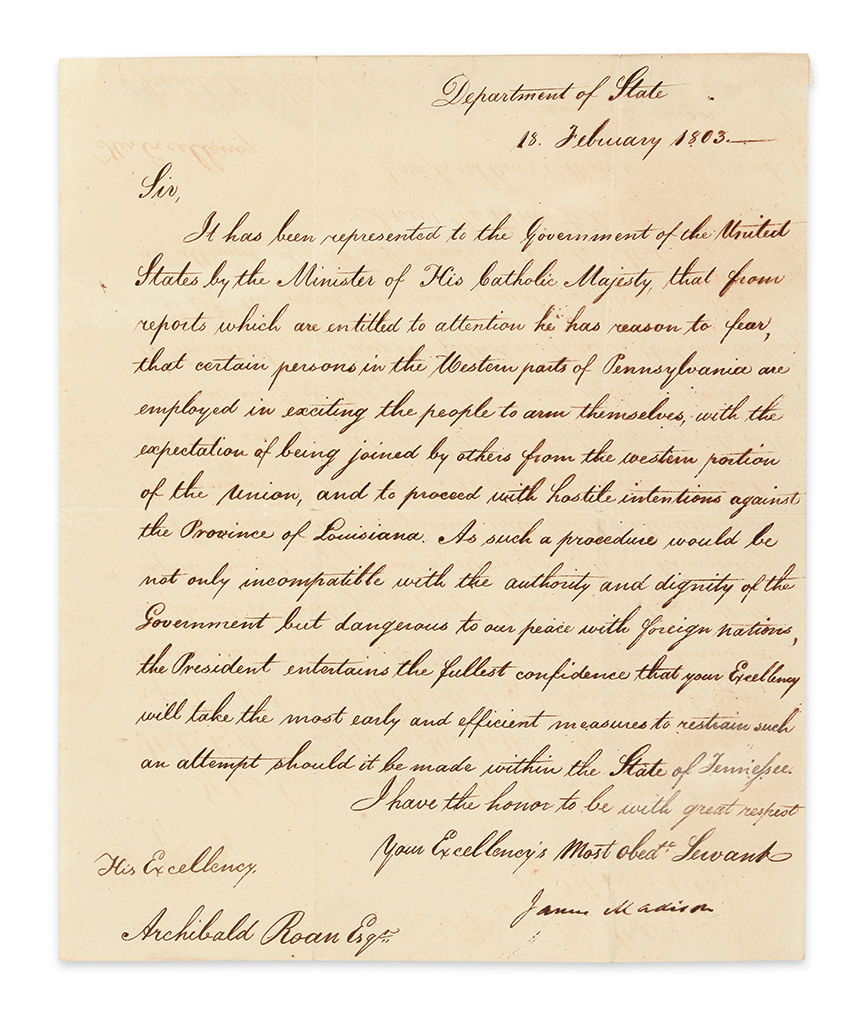 Department of State
18. February 1803.
Sir,
It has been represented to the Government of the United
States by the Minister of His Catholic Majesty, that from
reports which are entitled to attention he has reason to fear,
that certain persons in the Western parts of Pennsylvania are
employed in exciting the people to arm themselves, with the
expectation of being joined by others from the western portion
of the Union, and to proceed with hostile intentions against
the Province of Louisiana. As such a procedure would be
not only incompatible with the authority and dignity of the
Government but dangerous to our peace with foreign nations,
the President entertains the fullest confidence that your Excellency
will take the most early and efficient measures to restrain such
an attempt should it be made within the State of Tennessee.
I have the honor to be with great respect
Your Excellency's Most obedt. Servant
James Madison
His Excellency.
Archibald Roan Esqr.